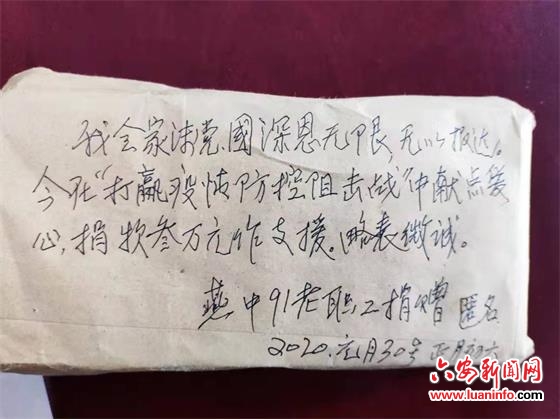 我全家沐党國深恩无限,无以报达。
今在“打赢疫情防控阻击战”中献点爱
心,捐款叁万元作支援。略表微诚。
燕中91老职工捐赠 匿名
2020.元月30号 正月初六
六安新闻网
www.luaninfo.com